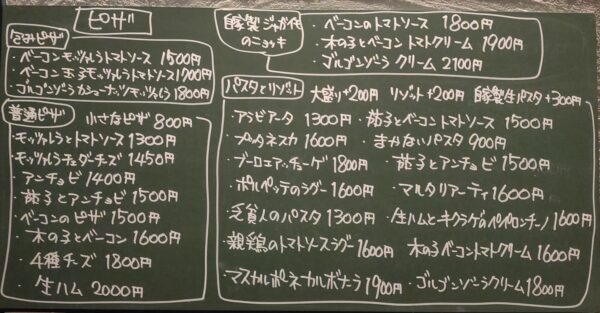 ピザ
包みピザ
・ベーコンモッツァレラトマトソース 1500円
・ベーコン玉子モッツァレラトマトソース 1900円
・ゴルゴンゾーラカシューナッツモッツァレラ 1800円
普通ピザ 小さなピザ 800円
・モッツァレラとトマトソース 1300円
・モッツァレラチェダーチーズ 1450円
・アンチョビ 1400円
・茄子とアンチョビ 1500円
・ベーコンのピザ 1500円
・木の子とベーコン 1600円
・4種チーズ 1800円
・生ハム 2000円
自家製ジャガイモのニョッキ
・ベーコンのトマトソース 1800円
・木の子とベーコン トマトクリーム 1900円
・ゴルゴンゾーラ クリーム 2100円
パスタとリゾット 大盛り+200円 リゾット+200円 自家製生パスタ+300円
・アラビアータ 1300円 ・茄子とベーコントマトソース 1500円
・プッタネスカ 1600円 ・まかないパスタ 900円
・ブーロエアッチューゲ 1800円 ・茄子とアンチョビ 1500円
・ポルペッテのラグー 1600円 ・マルタリアーティ 1600円
・乏貧人のパスタ 1300円 ・生ハムとキクラゲのペペロンチーノ 1600円
・親鶏のトマトソースラグー 1600円 木の子ベーコントマトクリーム 1600円
マスカルポーネカルボナーラ 1900円 ・ゴルゴンゾーラクリーム 1800円